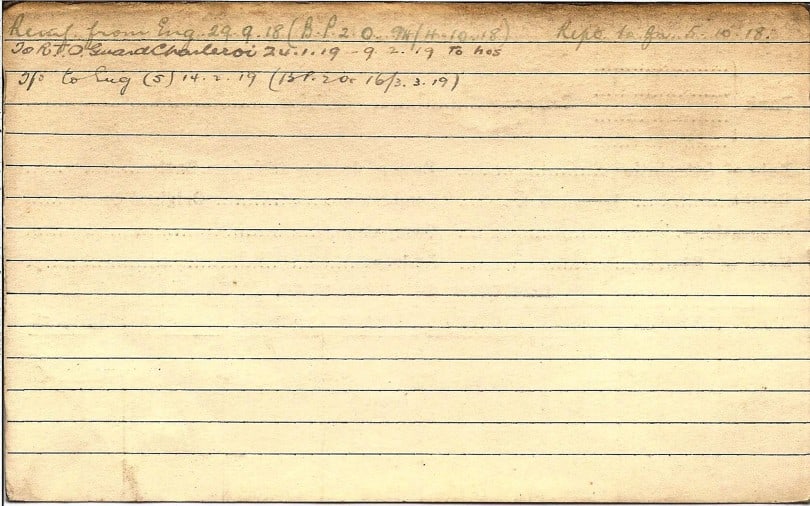 Reinf from Eng 29.9.18 (B.P.2.O. 94/4.10.18) Rept to Jn. 5.10.18.
To R.T.O Guard Charleroi 24.1.19 - 9.2.19 To hos
to Eng (S) 14.2.19 (B.P. 2 O. 16/3.3.19)